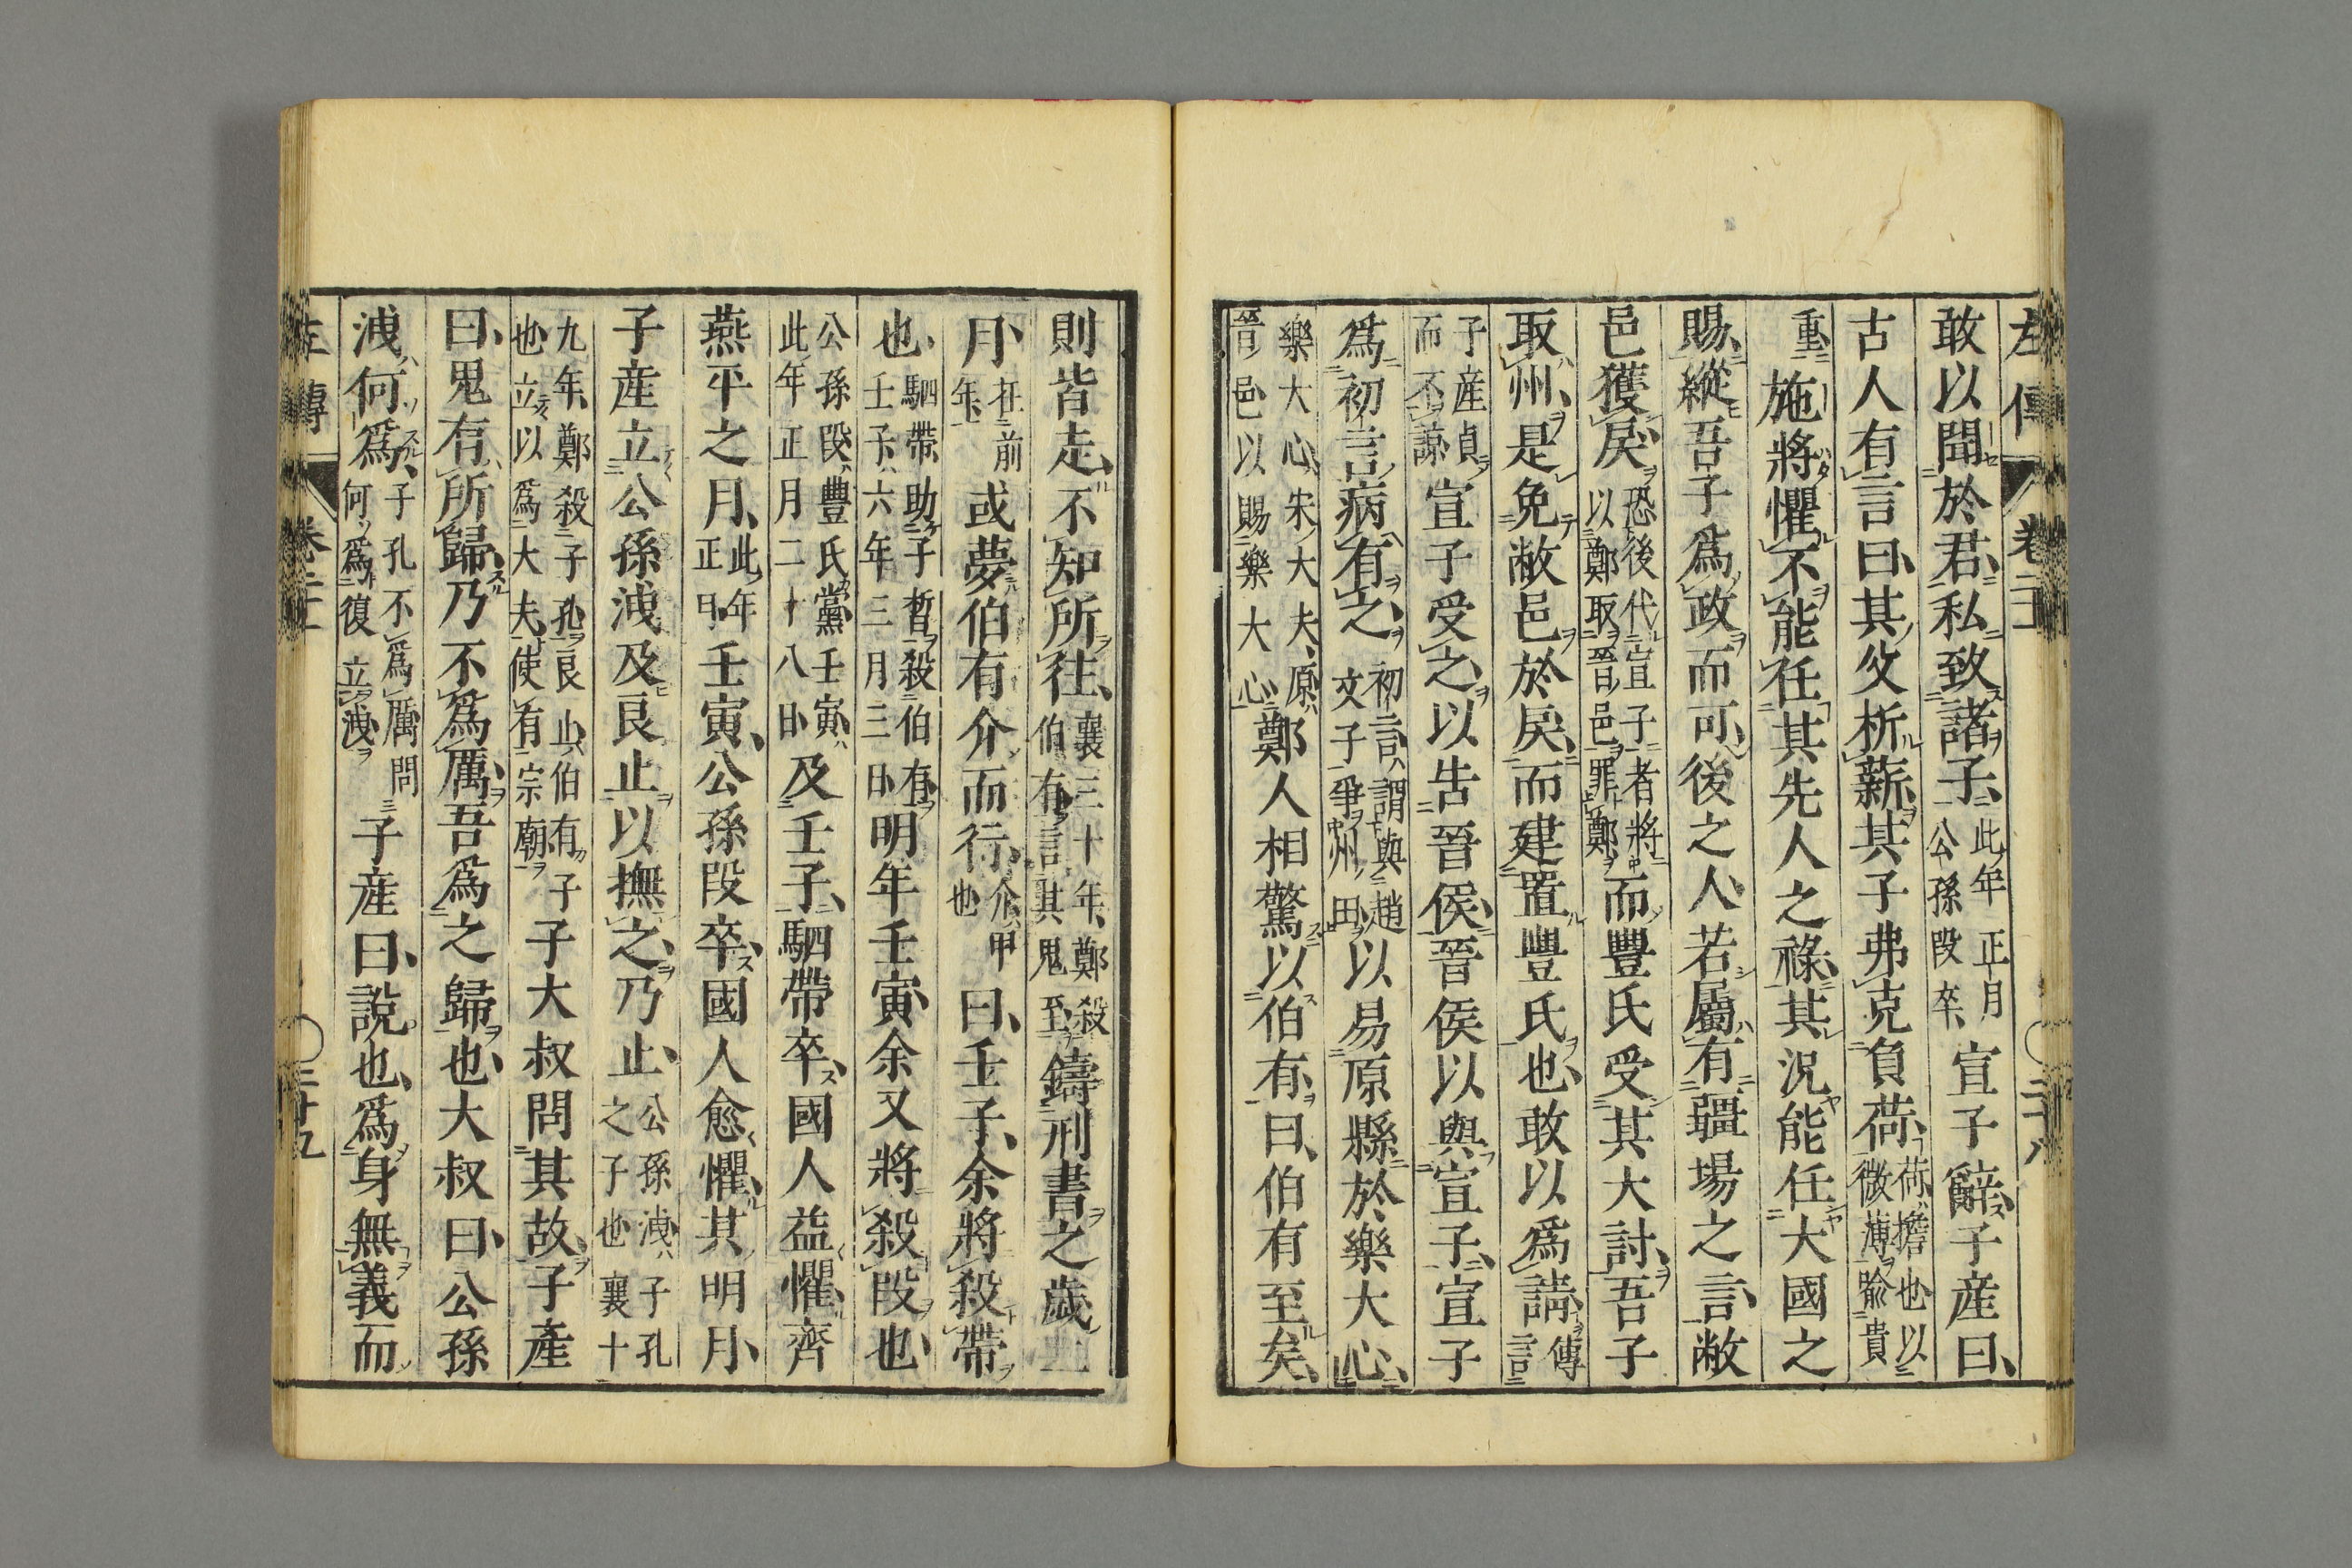 左傳 卷二十一 二十八
敢以聞於君、私致諸子、此年正月公孫段卒、宣子辭、子産曰、
古人有言曰、其父析薪、其子弗克負荷、荷、擔也、以微薄喩貴
重、施將懼不能任其先人之祿、其況能任大國之
賜、縱吾子爲政而可、後之人若屬有疆場之言、敝
邑獲戾、恐後代宣子者將以鄭取晉邑罪鄭、而豐氏受其大討、吾子
取州、是免敝邑於戾、而建置豐氏也、敢以爲請、傳言
子産貞而不諒、宣子受之、以告晉侯、晉侯以與宣子、宣子
爲初言、病有之、初言、謂與趙文子爭州田、以易原縣於樂大心、
樂大心、宋大夫、原、晉邑以賜樂大心、鄭人相驚以伯有、曰、伯有至矣、
則皆走、不知所往、襄三十年、鄭殺伯有、言其鬼至、鑄刑書之歲二
月、在前年、或夢伯有介而行、介、甲也、曰、壬子、余將殺帶
也、駟帶助子晳殺伯有、壬子、六年三月三日、明年壬寅、余又將殺段也、
公孫段、豐氏黨、壬寅、此年正月二十八日、及壬子、駟帶卒、國人益懼、齊
燕平之月、此年正月、壬寅、公孫段卒、國人愈懼、其明月、
子産立公孫洩及良止以撫之、乃止、公孫洩、子孔之子也、襄十
九年、鄭殺子孔、良止、伯有子也、立以爲大夫、使有宗廟、子大叔問其故、子產
曰、鬼有所歸、乃不爲厲、吾爲之歸也、大叔曰、公孫
洩何爲、子孔不爲厲、問何爲復立洩、子産曰、説也、爲身無義而
左傳 卷二十一 二十九